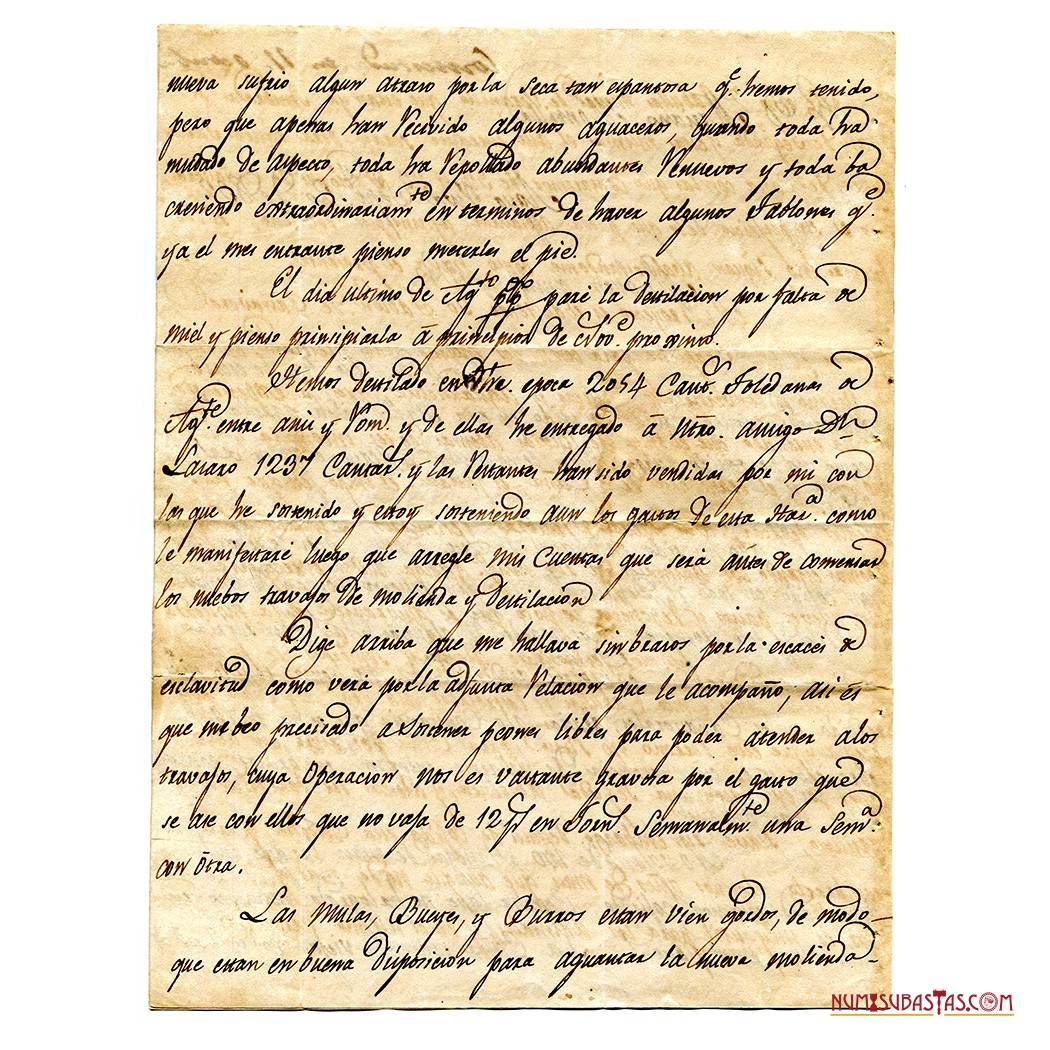 nueva sufrio algun atraso por la seca tan espantosa q.e hemos tenido,
pero que apenas han recivido algunos aguaceros, quando toda ha
mudado de aspecto, toda ha repollado abundantes renuevos y toda ba
creciendo extraordinariam.te en terminos de haver algunos Tablones q.e
ya el mes entrante pienso meterles el pie.
El dia ultimo de Ag.to pp.do paré la destilacion por falta de
miel y pienso principiarla á principios de Nov.e proximo.
Hemos destilado en dha. epoca 2054 Cant.s Toledanas de
Ag.te entre anis y Rom. y de ellas he entregado á ntro. amigo Dn.
Lazaro 1237 Cantar.s y las restantes han sido vendidas por mi con
las que he sostenido y estoy sosteniendo aun los gastos de esta Haz.a como
le manifestaré luego que arregle mis Cuentas que será ántes de comensar
los nuebos travajos de molienda y destilación
Dige arriba que me hallava sin brasos por la escaces de
esclavitud como verá por la adjunta relacion que le acompaño, asi és
que me beo precisado a sostener peones libres para poder átender a los
travajos, cuya operacion nos es vastante gravosa por el gasto que
se ase con ellos que no vaja de 12 p.s en Jorn.l Semanalm.te una Sem.a
con ótra.
Las Mulas, Bueyes, y Burros estan vien gordos, de modo
que estan en buena disposicion para aguantar la nueva molienda
NUMISUBASTAS.COM